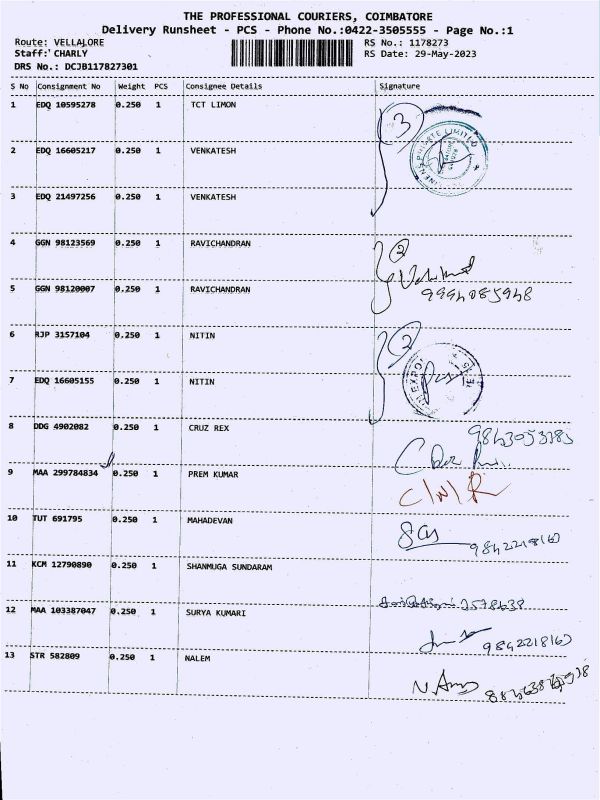 THE PROFESSIONAL COURIERS, COIMBATORE
Delivery Runsheet - PCS - Phone No.:0422-3505555 - Page No.:1
Route: VELLAJORE RS No.: 1178273
Staff: CHARLY RS Date: 29-May-2023
DRS No.: DCJB117827301
S No Consignment No Weight PCS Consignee Details Signature
1 EDQ 10595278 0.250 1 TCT LIMON 3
2 EDQ 16605217 0.250 1 VENKATESH
3 EDQ 21497256 0.250 1 VENKATESH
4 GGN 98123569 0.250 1 RAVICHANDRAN 2
5 GGN 98120007 0.250 1 RAVICHANDRAN
6 RJP 3157104 0.250 1 NITIN 2
7 EDQ 16605155 0.250 1 NITIN
8 DDG 4902082 0.250 1 CRUZ REX
9 MAA 299784834 0.250 1 PREM KUMAR
10 TUT 691795 0.250 1 MAHADEVAN
11 KCM 12790890 0.250 1 SHANMUGA SUNDARAM
12 MAA 103387047 0.250 1 SURYA KUMARI
13 STR 582809 0.250 1 NALEM